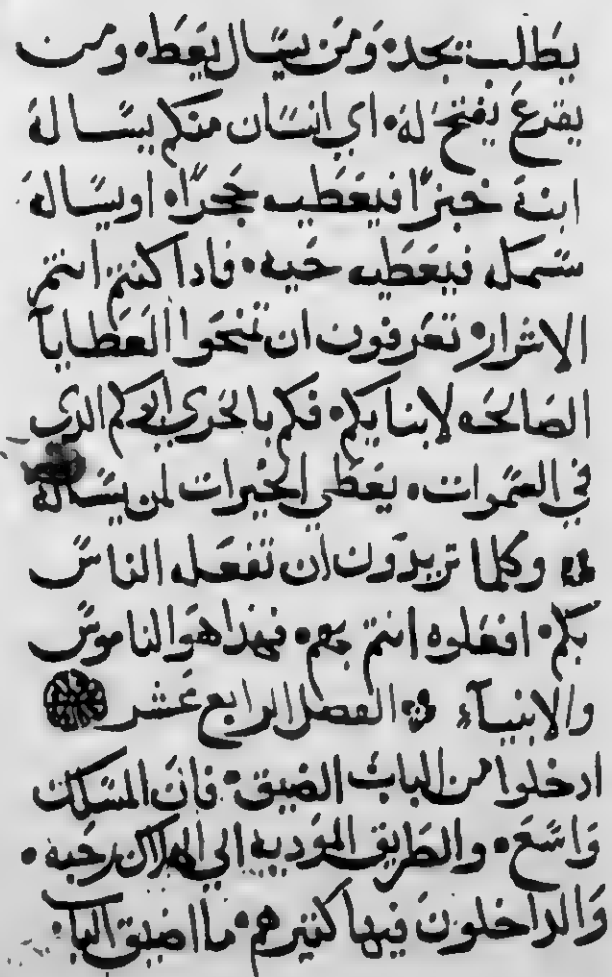 يطلب يجد ومن يسال يعطه ومن
يقرع يفتح له اي انسان منكم يساله
ابنه خبزا فيعطيه حجرا او يساله
سمكه فيعطيه حيه فاذا كنتم انتم
الاشرار تعرفون ان تمنحوا العطايا
الصالحه لابنايكم فكم بالحري ابوكم الذي
في السموات يعطي الخيرات لمن يساله
وكلما تريدون ان تفعل الناس
بكم افعلوه انتم بهم فهذا هو الناموس
والانبيآء الفصل الرابع عشر
ادخلوا من الباب الضيق فان المسلك
واسع والطريق المودية الي الهلاك رحبة
والداخلون فيها كثير هم ما اضيق البا